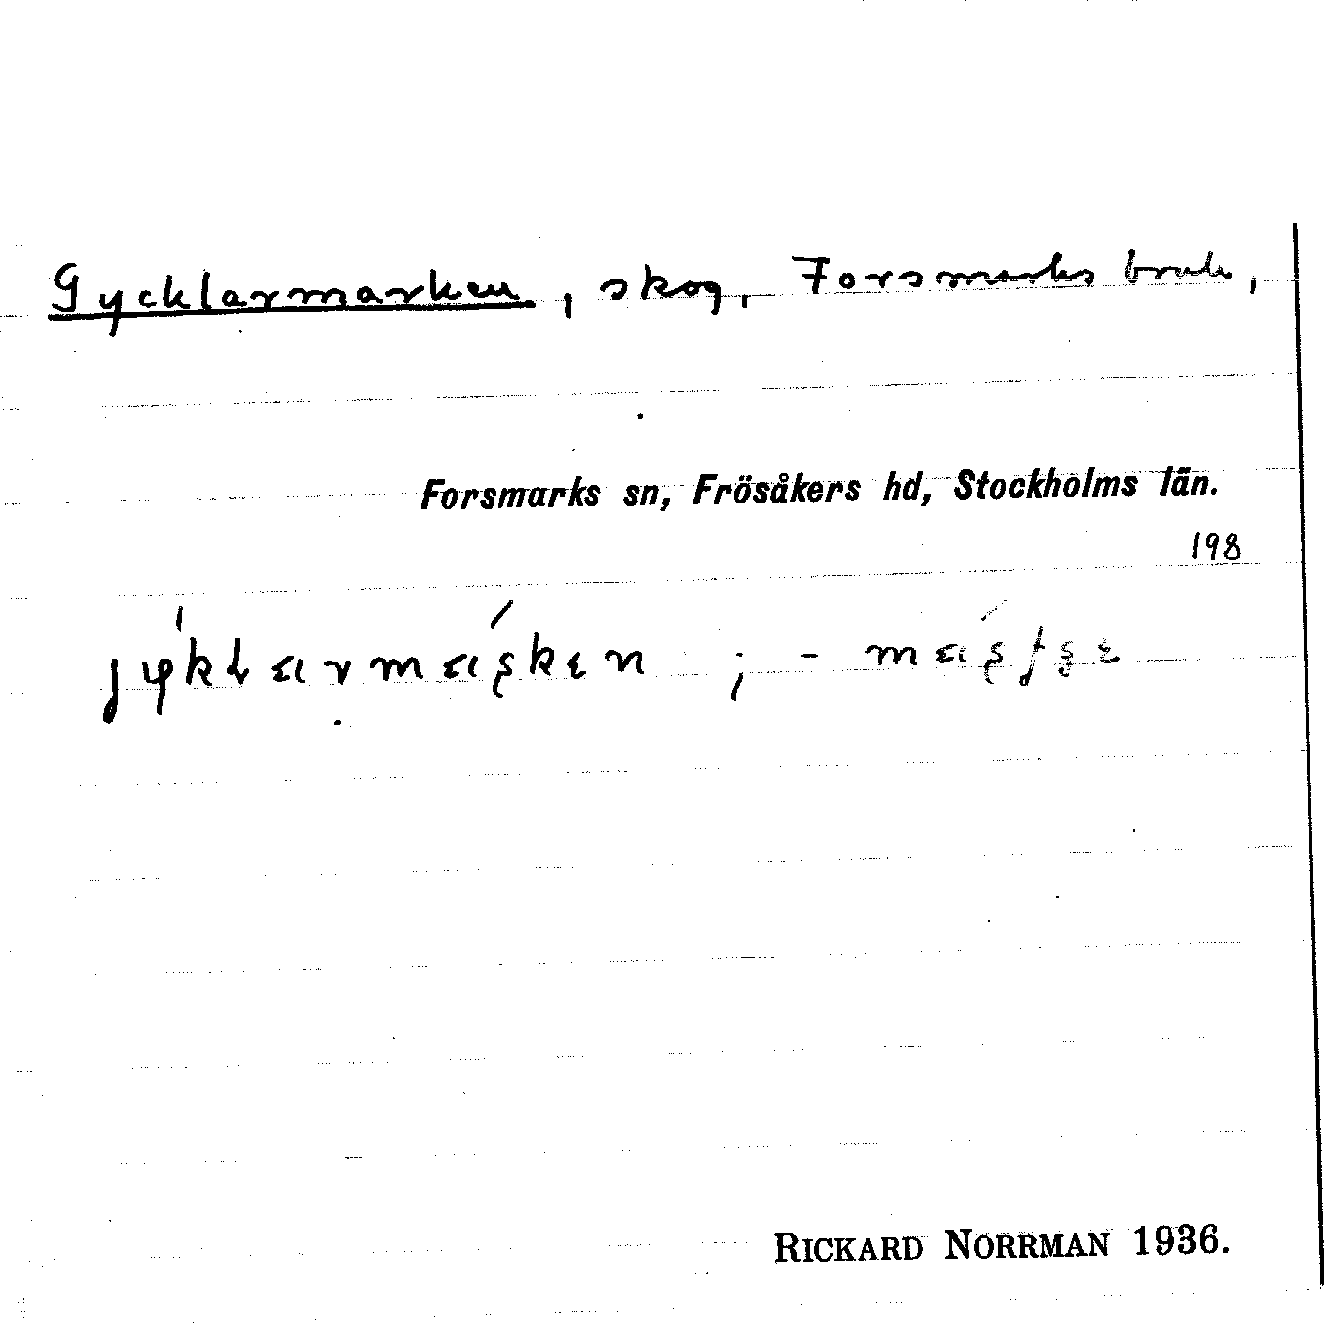 Gycklarmarken, skog, Forsmarks bruk,
Forsmarks sn, Frösåkers hd, Stockholms län.
198
RICKARD NORRMAN 1936.